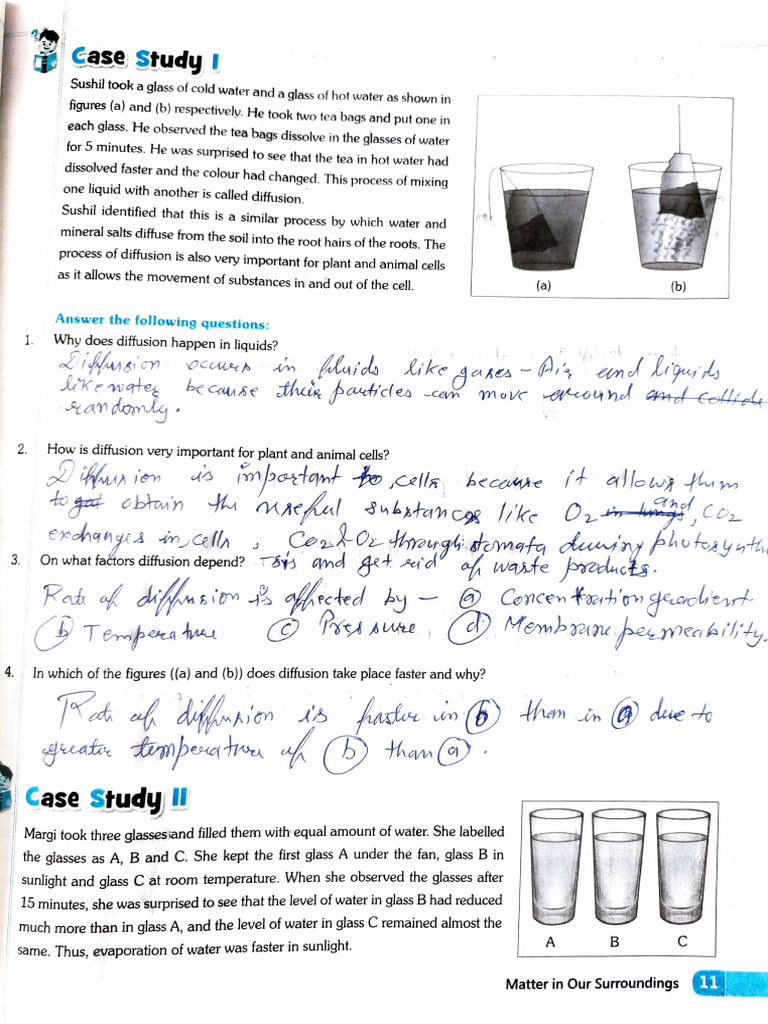 Case Study I
Sushil took a glass of cold water and a glass of hot water as shown in
figures (a) and (b) respectively. He took two tea bags and put one in
each glass. He observed the tea bags dissolve in the glasses of water
for 5 minutes. He was surprised to see that the tea in hot water had
dissolved faster and the colour had changed. This process of mixing
one liquid with another is called diffusion.
Sushil identified that this is a similar process by which water and
mineral salts diffuse from the soil into the root hairs of the roots. The
process of diffusion is also very important for plant and animal cells
as it allows the movement of substances in and out of the cell.
(a) (b)
Answer the following questions:
1. Why does diffusion happen in liquids?
Diffusion occurs in fluids like gases - Air and liquids
like water because their particles can move around and collide
randomly.
2. How is diffusion very important for plant and animal cells?
Diffusion is important to cells because it allows them
to get obtain the useful substances like O2 in lungs and, CO2
exchanges in cells, CO2 & O2 through stomata during photosynthe
3. On what factors diffusion depend? sis and get rid of waste products.
Rate of diffusion is affected by - (a) Concentration gradient
(b) Temperature (c) Pressure (d) Membrane permeability.
4. In which of the figures ((a) and (b)) does diffusion take place faster and why?
Rate of diffusion is faster in (b) than in (a) due to
greater temperature of (b) than (a).
Case Study II
Margi took three glasses and filled them with equal amount of water. She labelled
the glasses as A, B and C. She kept the first glass A under the fan, glass B in
sunlight and glass C at room temperature. When she observed the glasses after
15 minutes, she was surprised to see that the level of water in glass B had reduced
much more than in glass A, and the level of water in glass C remained almost the
same. Thus, evaporation of water was faster in sunlight.
A B C
Matter in Our Surroundings 11